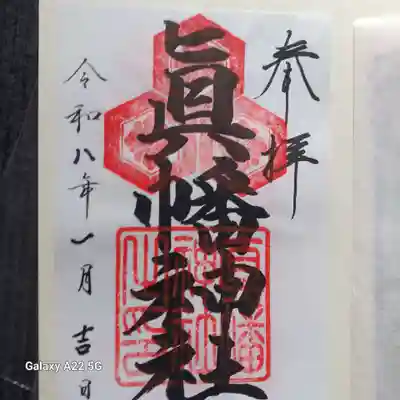 奉拝
眞幡神社
令和八年一月吉日
Galaxy A22 5G